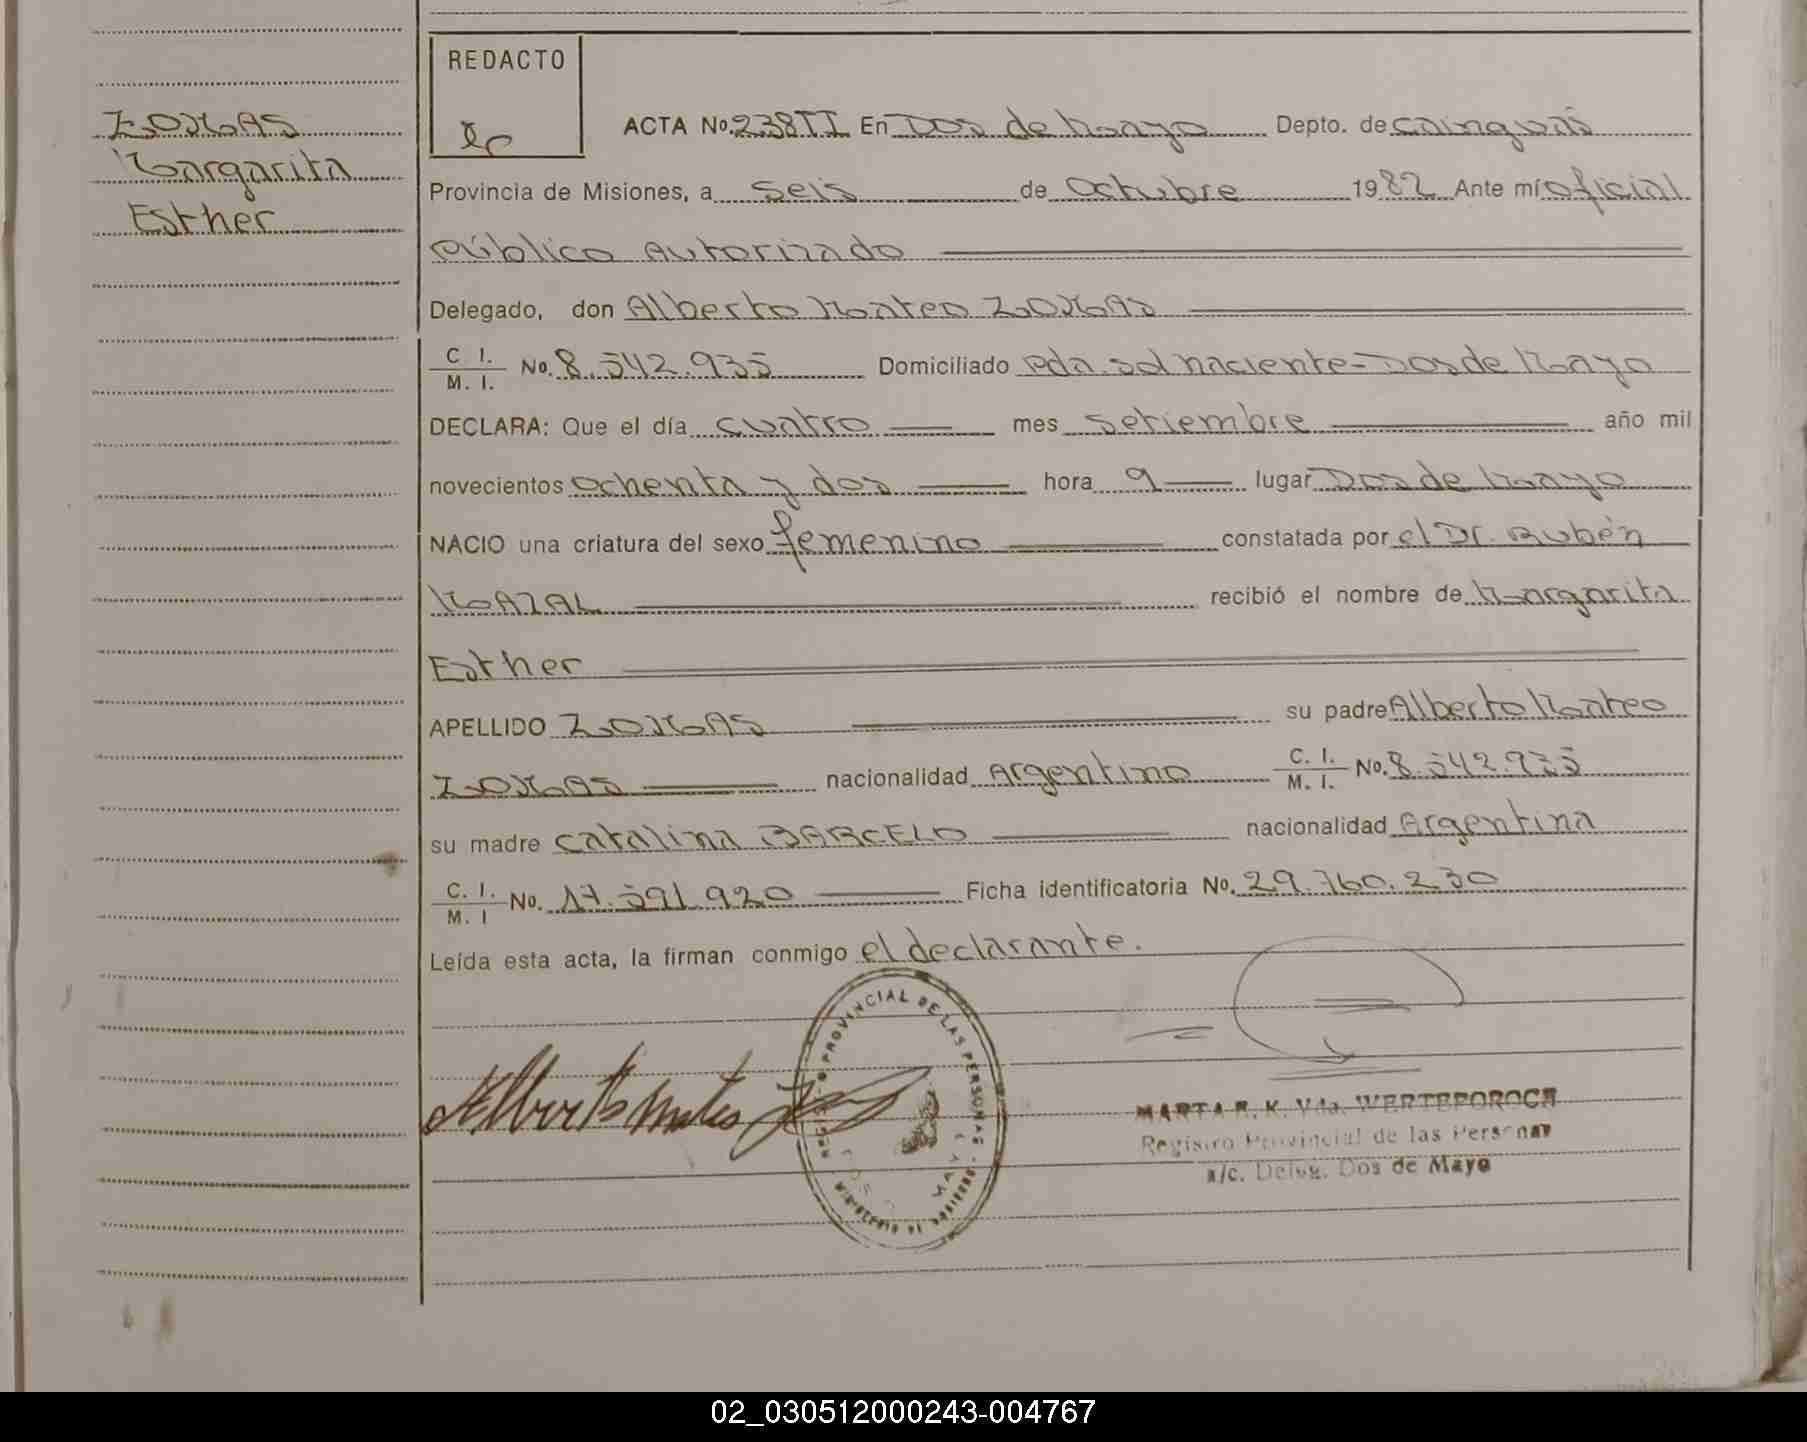 REDACTO
Margarita
Esther
ACTA No. 238 TI En Dos de Mayo Depto. de Cainguás
Provincia de Misiones, a seis de Octubre 1982 Ante mí oficial
Público Autorizado
Delegado, don Alberto Mateo
C. I. M. I. No. 8.542.935 Domiciliado Pda. sol naciente-Dos de Mayo
DECLARA: Que el día cuatro mes setiembre año mil
novecientos ochenta y dos hora 9 lugar Dos de Mayo
NACIO una criatura del sexo femenino constatada por el Dr. Rubén
MAZAL recibió el nombre de Margarita
Esther
APELLIDO su padre Alberto Mateo
nacionalidad Argentino C. I. M. I. No. 8.542.935
su madre Catalina BARCELO nacionalidad Argentina
C. I. M. I No. 17.591.920 Ficha identificatoria No. 29.760.230
Leída esta acta, la firman conmigo el declarante.
PROVINCIAL DE LAS PERSONAS
MARTA R. K. Vda. WERTEPOROCH
Registro Provincial de las Personas
a/c. Deleg. Dos de Mayo
02_030512000243-004767